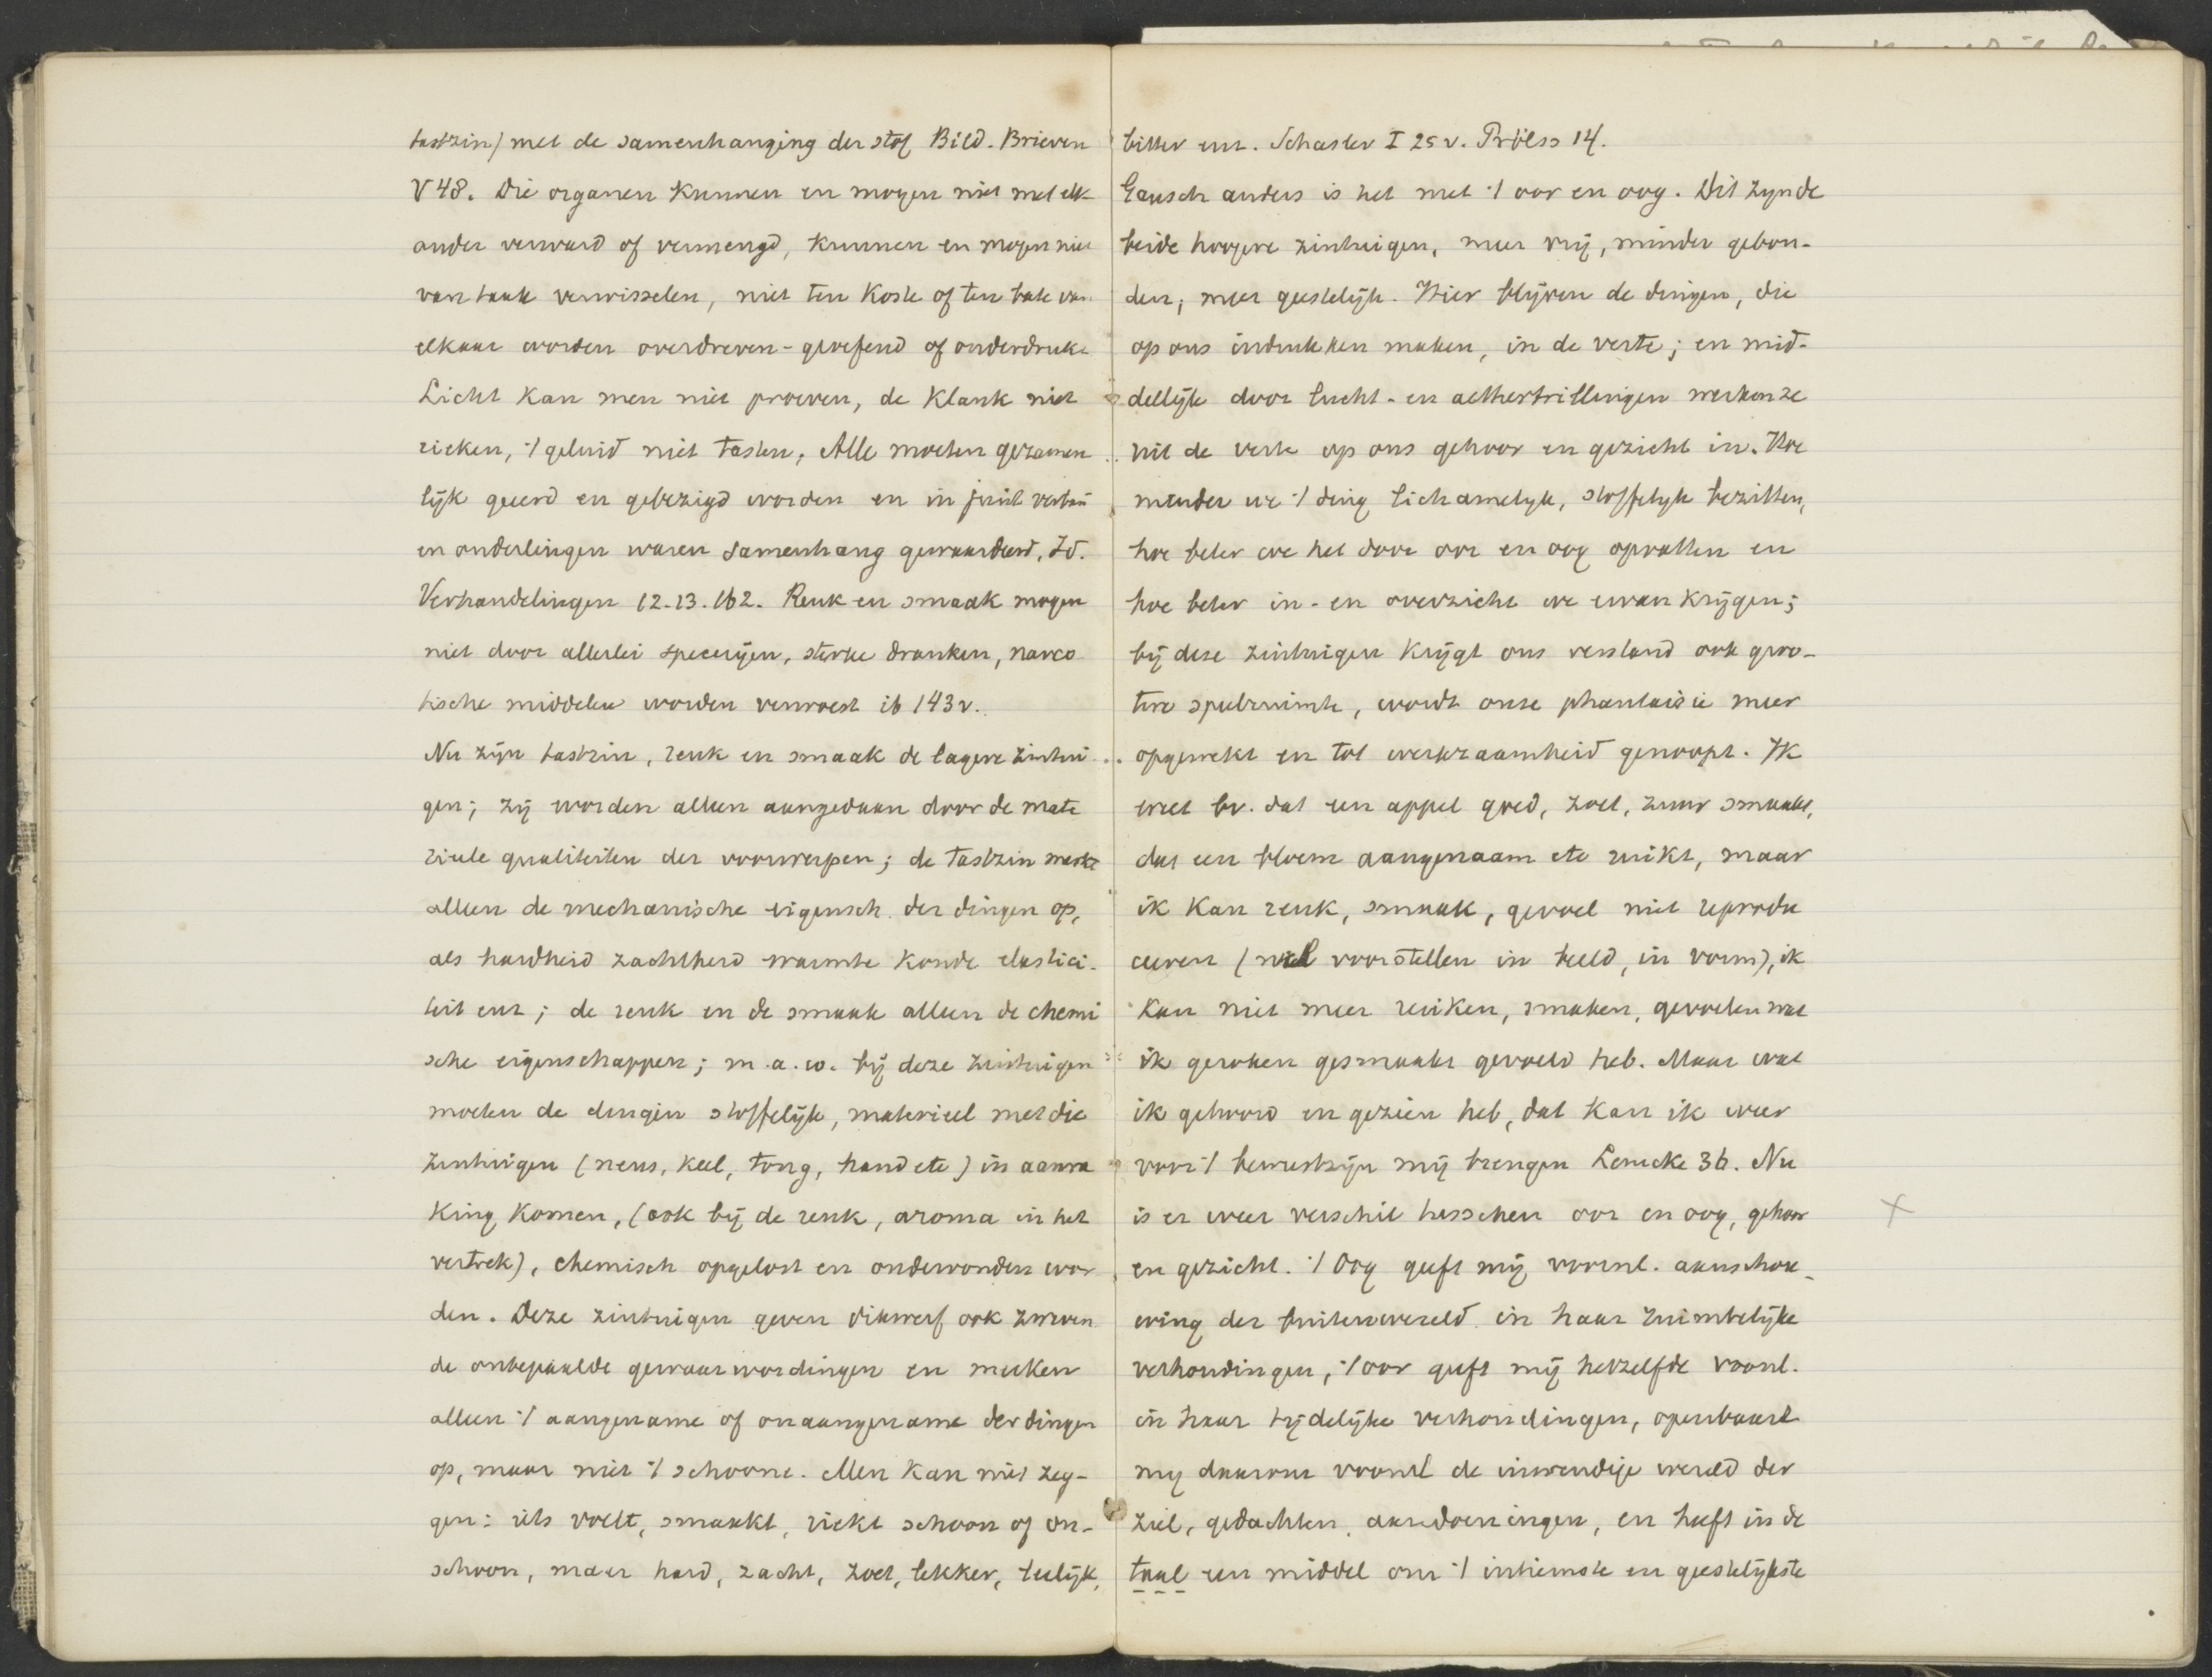 tastzin) met de samenhanging der stof Bild. Brieven
V 48. Die organen kunnen en mogen niet met elk-
ander verward of vermengd, kunnen en mogen niet
van taak verwisselen, niet ten koste of ten bate van
elkaar worden overdreven-geoefend of onderdrukt
Licht kan men niet proeven, de klank niet
rieken, 't geluid niet tasten; Alle moeten gezamen
lijk geeerd en gebezigd worden en in juist verban
en onderlingen waren samenhang gewaardeerd, Id.
Verhandelingen 12.13.162. Reuk en smaak mogen
niet door allerlei specerijen, sterke dranken, narco
tische middelen worden verwoest ib 143 v.
Nu zijn tastzin, reuk en smaak de lagere zintui
gen; zij worden alleen aangedaan door de mate
rieele qualiteiten der voorwerpen; de tastzin merkt
alleen de mechanische eigensch. der dingen op,
als hardheid zachtheid warmte koude elastici-
teit enz; de reuk en de smaak alleen de chemi
sche eigenschappen; m.a.w. bij deze zintuigen
moeten de dingen stoffelijk, materieel met die
zintuigen (neus, keel, tong, hand etc) in aanra
king komen, (ook bij de reuk, aroma in het
vertrek), chemisch opgelost en ondervonden wor
den. Deze zintuigen geven dikwerf ook zweven
de onbepaalde gewaarwordingen en merken
alleen 't aangename of onaangename der dingen
op, maar niet 't schoone. Men kan niet zeg-
gen: iets voelt, smaakt, riekt schoon of on-
schoon, maar hard, zacht, zoet, lekker, leelijk,
bitter enz. Schasler I 25 v. Prölss 14.
Gansch anders is het met 't oor en oog. Dit zijn de
beide hoogere zintuigen, meer vrij, minder gebon-
den; meer geestelijk. Hier blijven de dingen, die
op ons indrukken maken, in de verte; en mid-
dellijk door lucht- en aethertrillingen werken ze
uit de verte op ons gehoor en gezicht in. Hoe
minder we 't ding lichamelijk, stoffelijk bezitten,
hoe beter we het door oor en oog opvatten en
hoe beter in- en overzicht we ervan krijgen;
bij deze zintuigen krijgt ons verstand ook groo-
tere speelruimte, wordt onze phantaisie meer
opgewekt en tot werkzaamheid genoopt. Ik
weet bv. dat een appel goed, zoet, zuur smaakt,
dat een bloem aangenaam etc ruikt, maar
ik kan reuk, smaak, gevoel niet reprodu
ceeren (niet voorstellen in beeld, in vorm), ik
kan niet meer ruiken, smaken, gevoelen wat
ik geroken gesmaakt gevoeld heb. Maar wat
ik gehoord en gezien heb, dat kan ik weer
voor 't bewustzijn mij brengen Lemcke 36. Nu
is er weer verschil tusschen oor en oog, gehoor
en gezicht. 't Oog geeft mij voornl. aanschou-
wing der buitenwereld in haar ruimtelijke
verhoudingen, 't oor geeft mij hetzelfde voornl.
in haar tijdelijke verhoudingen, openbaart
mij daarom voornl de inwendige wereld der
ziel, gedachten, aandoeningen, en heeft in de
taal een middel om 't intiemste en geestelijkste